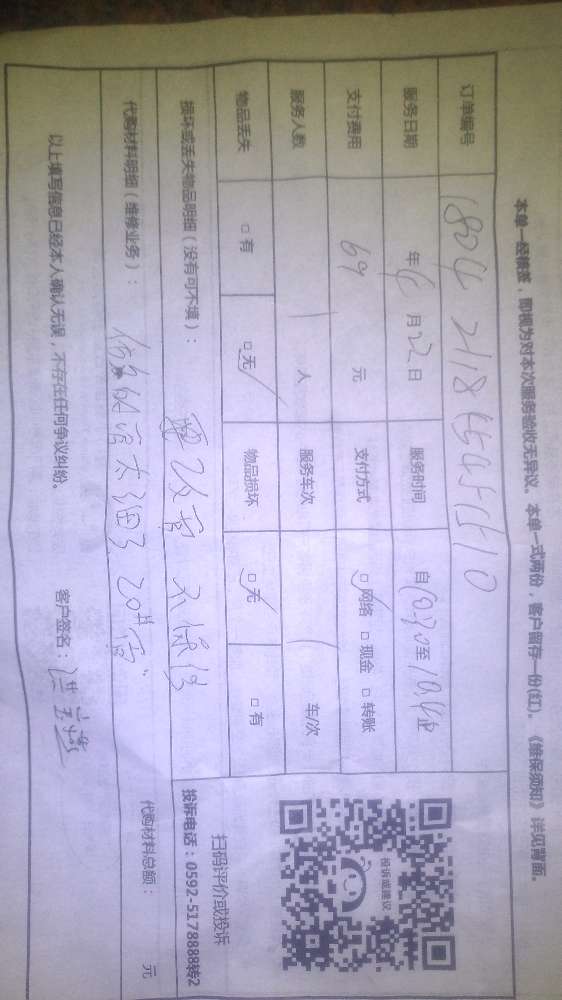 本单一经楠签，即视为对本次服务验收无异议。本单一式两份，客户留存一份(红)。《维保须知》详见背面。
订单编号
服务日期 年 6 月 22 日 服务时间 自 至
支付费用 69 元 支付方式 □网络 □现金 □转账
服务人数 1 人 服务车次 1 车/次
物品丢失 □有 □无 物品损坏 □无 □有
损坏或丢失物品明细（没有可不填）： 不保修
代购材料明细（维修业务）： 太细了
代购材料总额： 元
投诉或建议
扫码评价或投诉
投诉电话：0592-5178888转2
以上填写信息已经本人确认无误，不存在任何争议纠纷。 客户签名：